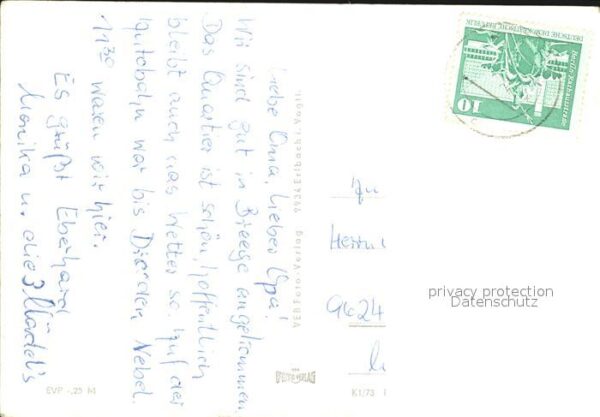 Liebe Oma, lieber Opa!
Wir sind gut in Breege angekommen
Das Quartier ist schön, hoffentlich
bleibt auch das Wetter so. Auf der
Autobahn war bis Dresden Nebel.
11³⁰ waren wir hier.
Es grüßt Eberhard
Monika u. die 3 Mädel's
VEB Foto-Verlag 9934 Erlbach i. Vogtl.
EVP -,25 M
K1/73
DEUTSCHE DEMOKRATISCHE REPUBLIK
Berlin-Rathausstraße
10
Herrn
9624
privacy protection
Datenschutz